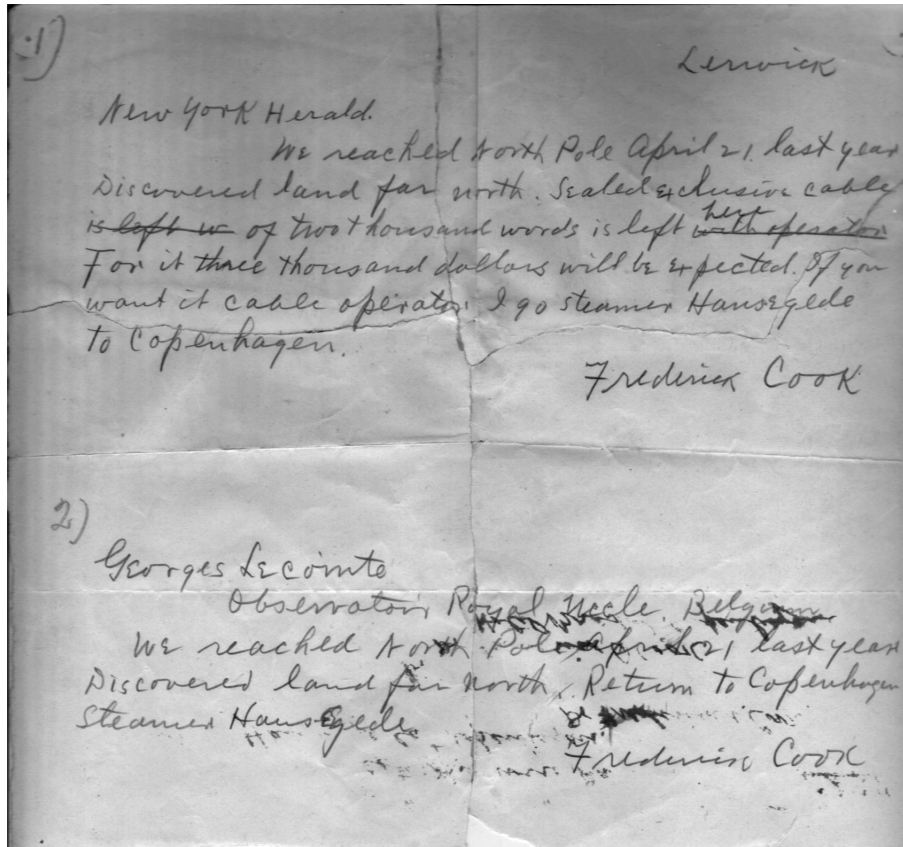 1)
Lerwick
New York Herald.
We reached North Pole April 21. last year
Discovered land far north. Sealed exclusive cable
is left w of two thousand words is left with operator here
For it three thousand dollars will be expected. If you
want it cable operator. I go steamer Hansegede
to Copenhagen.
Frederick Cook
2)
Georges Lecointe
Observatoir Royal Uccle. Belgium
We reached North Pole April 21 last year
Discovered land far north. Return to Copenhagen
Steamer Hans Egede
Frederick Cook